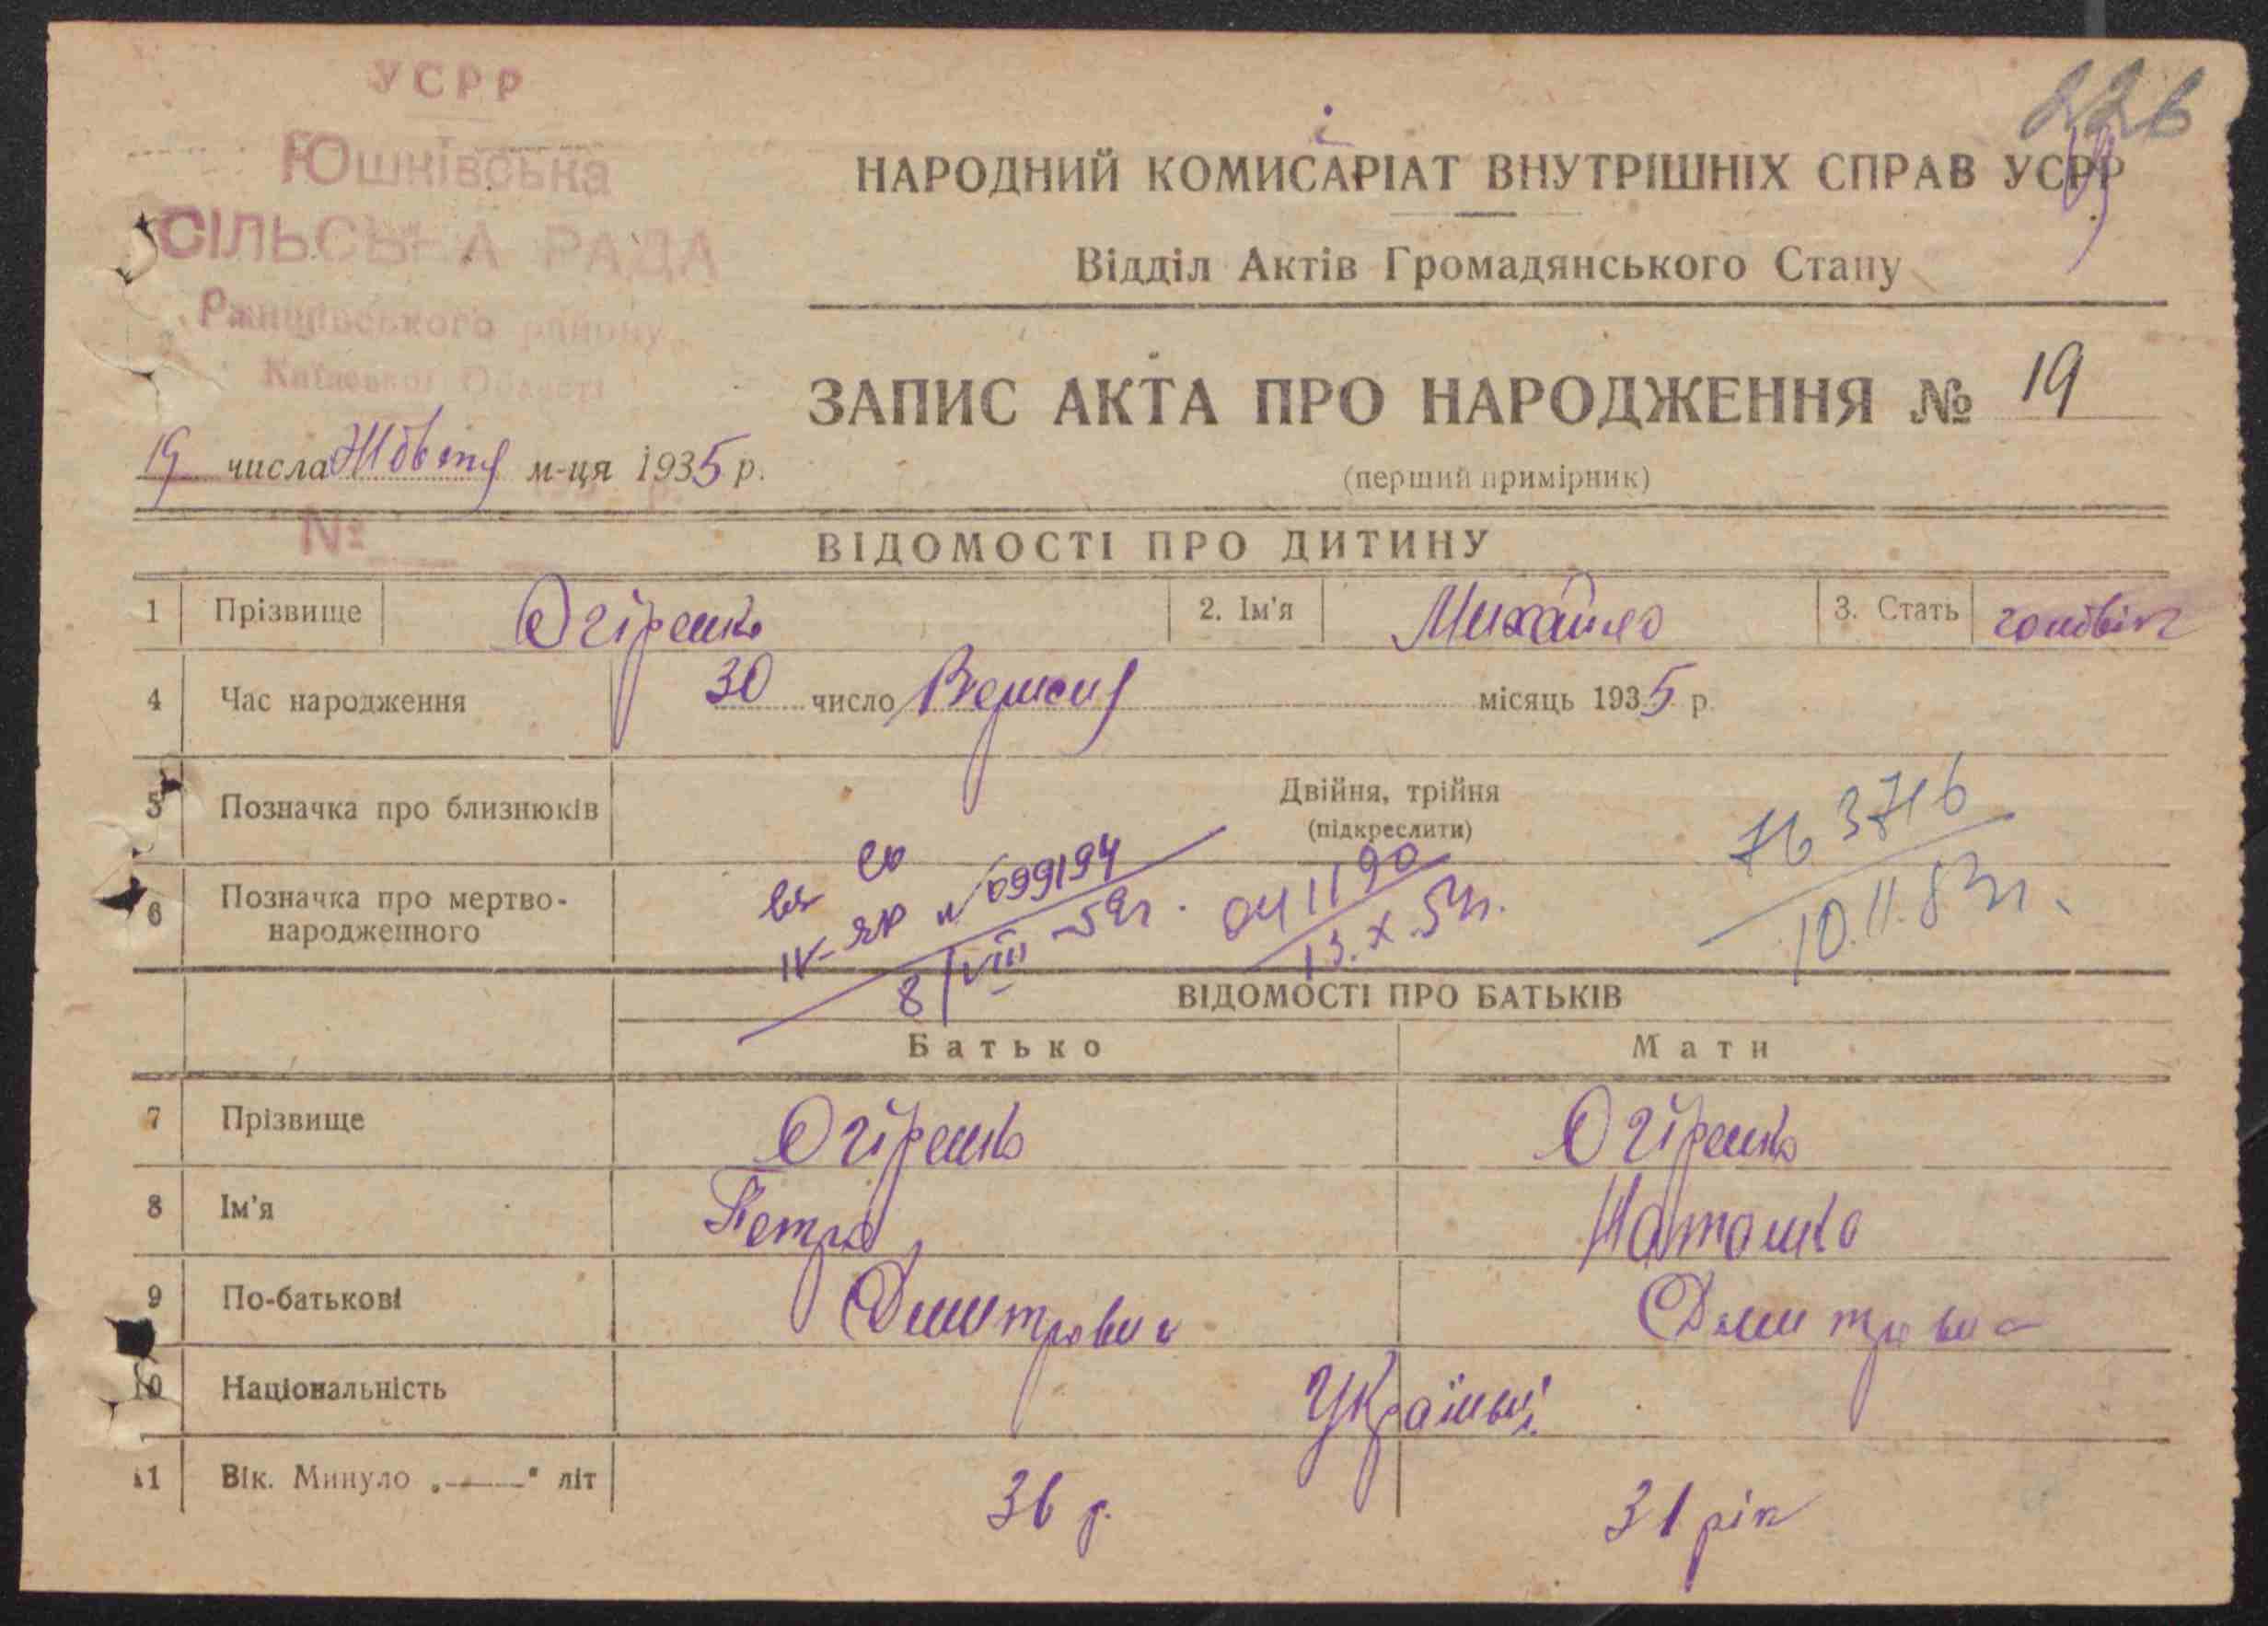 УСРР
Юшківська
СІЛЬСЬКА РАДА
Ржищівського району
Київської Області
№
226
НАРОДНИЙ КОМИСАРІАТ ВНУТРІШНІХ СПРАВ УСРР
Відділ Актів Громадянського Стану
ЗАПИС АКТА ПРО НАРОДЖЕННЯ № 19
(перший примірник)
19 числа Жовтня м-ця 1935 р.
ВІДОМОСТІ ПРО ДИТИНУ
1 Прізвище Огіренко 2. Ім'я Михайло 3. Стать чоловік
4 Час народження 30 число Вересня місяць 1935 р.
5 Позначка про близнюків Двійня, трійня
(підкреслити)
6 Позначка про мертво-
народженного
IV-ЯР № 099194
8/VIII-59г.
0411190
13.X.53г.
10.11.83г.
ВІДОМОСТІ ПРО БАТЬКІВ
Батько Мати
7 Прізвище Огіренко Огіренко
8 Ім'я Петро
9 По-батькові Дмитрович Дмитров
10 Національність Україньці
11 Вік. Минуло „ “ літ 36 р. 31 рік